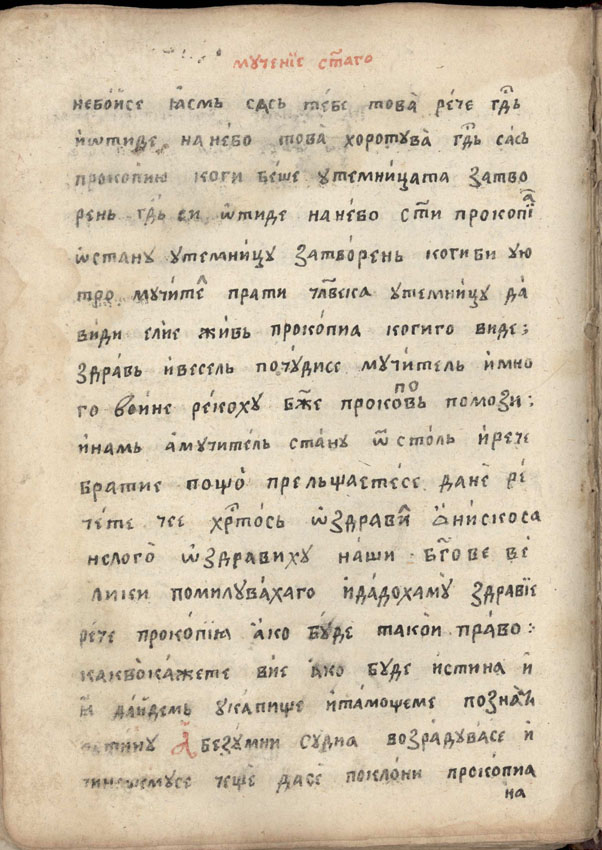 мꙋченїе ст҃аго
небо́исе ꙗ҆́смь сась тебе това̀ ре́че гд҃ь
и҆ѿтиде нане́бо това̀ хоротꙋва̀ гд҃ь сась
прокопию коги бе́ше ꙋтемни́цата затво
рень гд҃ь ѿтиде нане́бо ст҃и прокопї
а
ѡ҆станꙋ ꙋтемни́цꙋ затво́рень когиби ꙋю
тро мꙋчи́те прати чл҃века ꙋтемни́цꙋ да̀
ви́ди елие живь проко́пиа когиго виде:
здра́вь и҆весель почꙋ́дисе мꙋчи́тель и҆мно
го войне ре́кохꙋ бж҃е проковь помози:
по
и҆намь а҆мꙋчите́ль станꙋ ѿсто́ль и҆рече
братие пощо̀ прельщаете́се данѐ ре́
че́те че хрⷭ҇то́сь ѡ҆здрави а҆нискоса
него̀ ѡ҆здравихꙋ на́ши бг҃ове ве́
лики помилꙋва́хаго и҆да́дохамꙋ̀ здра́вїе
ре́че прокопїю а҆́ко бꙋ́де тако́и пра́во:
какво̀кажете вие а҆́ко бꙋде и҆стина и҆
да́йдемь ꙋка́пище и҆та́можеме познаи
А҆ безꙋ́мни сꙋдиа возра́дꙋва́се и҆
че́ще дасѐ покло́ни прокопиа
на